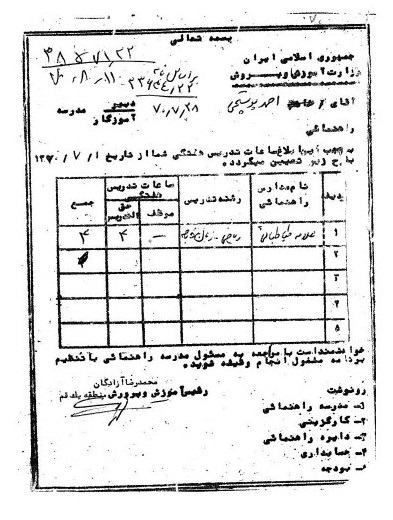 بسمه تعالی
جمهوری اسلامی ایران
وزارت آموزش و پرورش
۳۸۵۷۱/۲۲
۷۰،۸،۱۱
۷۰/۷/۲۸
آقای احمد
دبیر
آموزگار
مدرسه
راهنمائی
بموجب این ابلاغ ساعات تدریس هفتگی شما از تاریخ ۷/۱/ ۱۳۷۰
بشرح زیر تعیین میگردد.
ردیف
نام مدارس راهنمائی
رشته تدریس
ساعات تدریس هفتگی
موظف
حق التدریس
جمع
۱ علامه طباطبائی ریاضی - ۴ ۴
۲
۳
۴
۵
خواهشمنداست با مراجعه به مسئول مدرسه راهنمائی با تنظیم
برنامه مشغول انجام وظیفه شوید.
محمدرضا آزادگان
رئیس آموزش و پرورش منطقه یک قم
رونوشت
۱- مدرسه راهنمائی
۲- کارگزینی
۳- دایره راهنمائی
۴- حسابداری
۵- بودجه